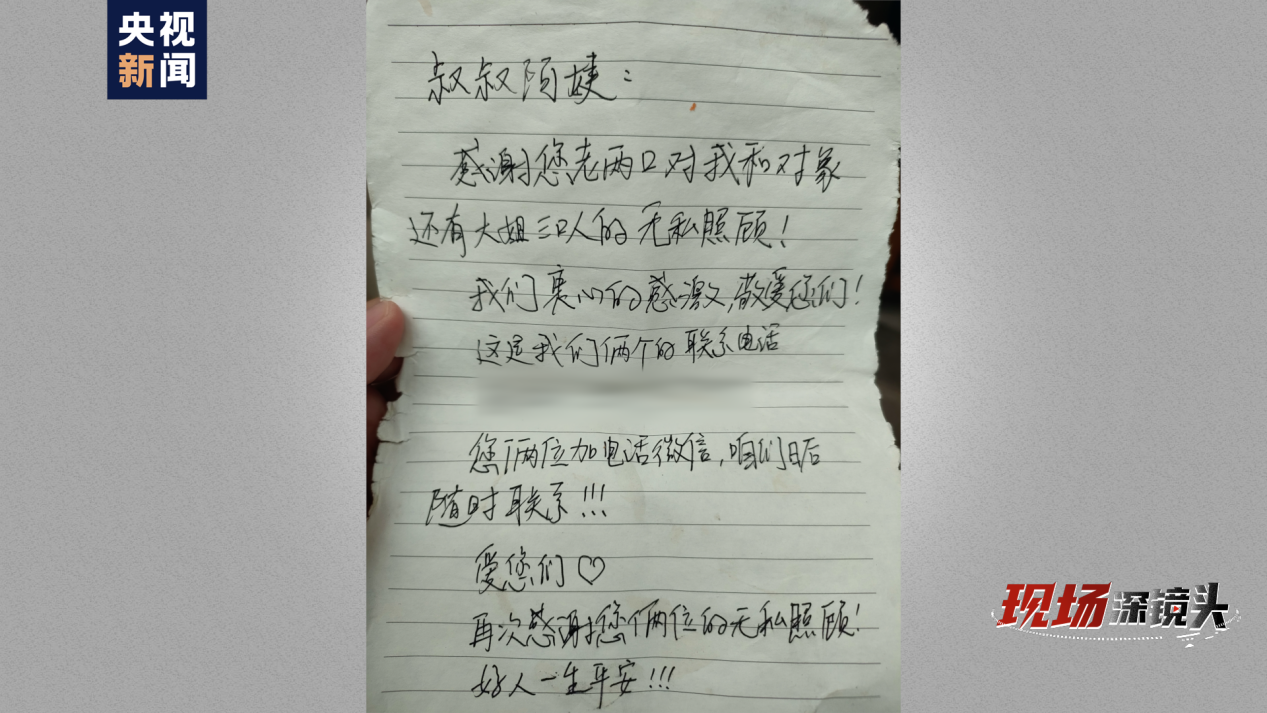 央视
新闻
叔叔阿姨：
感谢您老两口对我和对象
还有大姐三口人的无私照顾！
我们衷心的感激，敬爱您们！
这是我们俩个的联系电话
您俩位加电话微信，咱们日后
随时联系！！！
爱您们♡
再次感谢您俩位的无私照顾！
好人一生平安！！！
现场深镜头